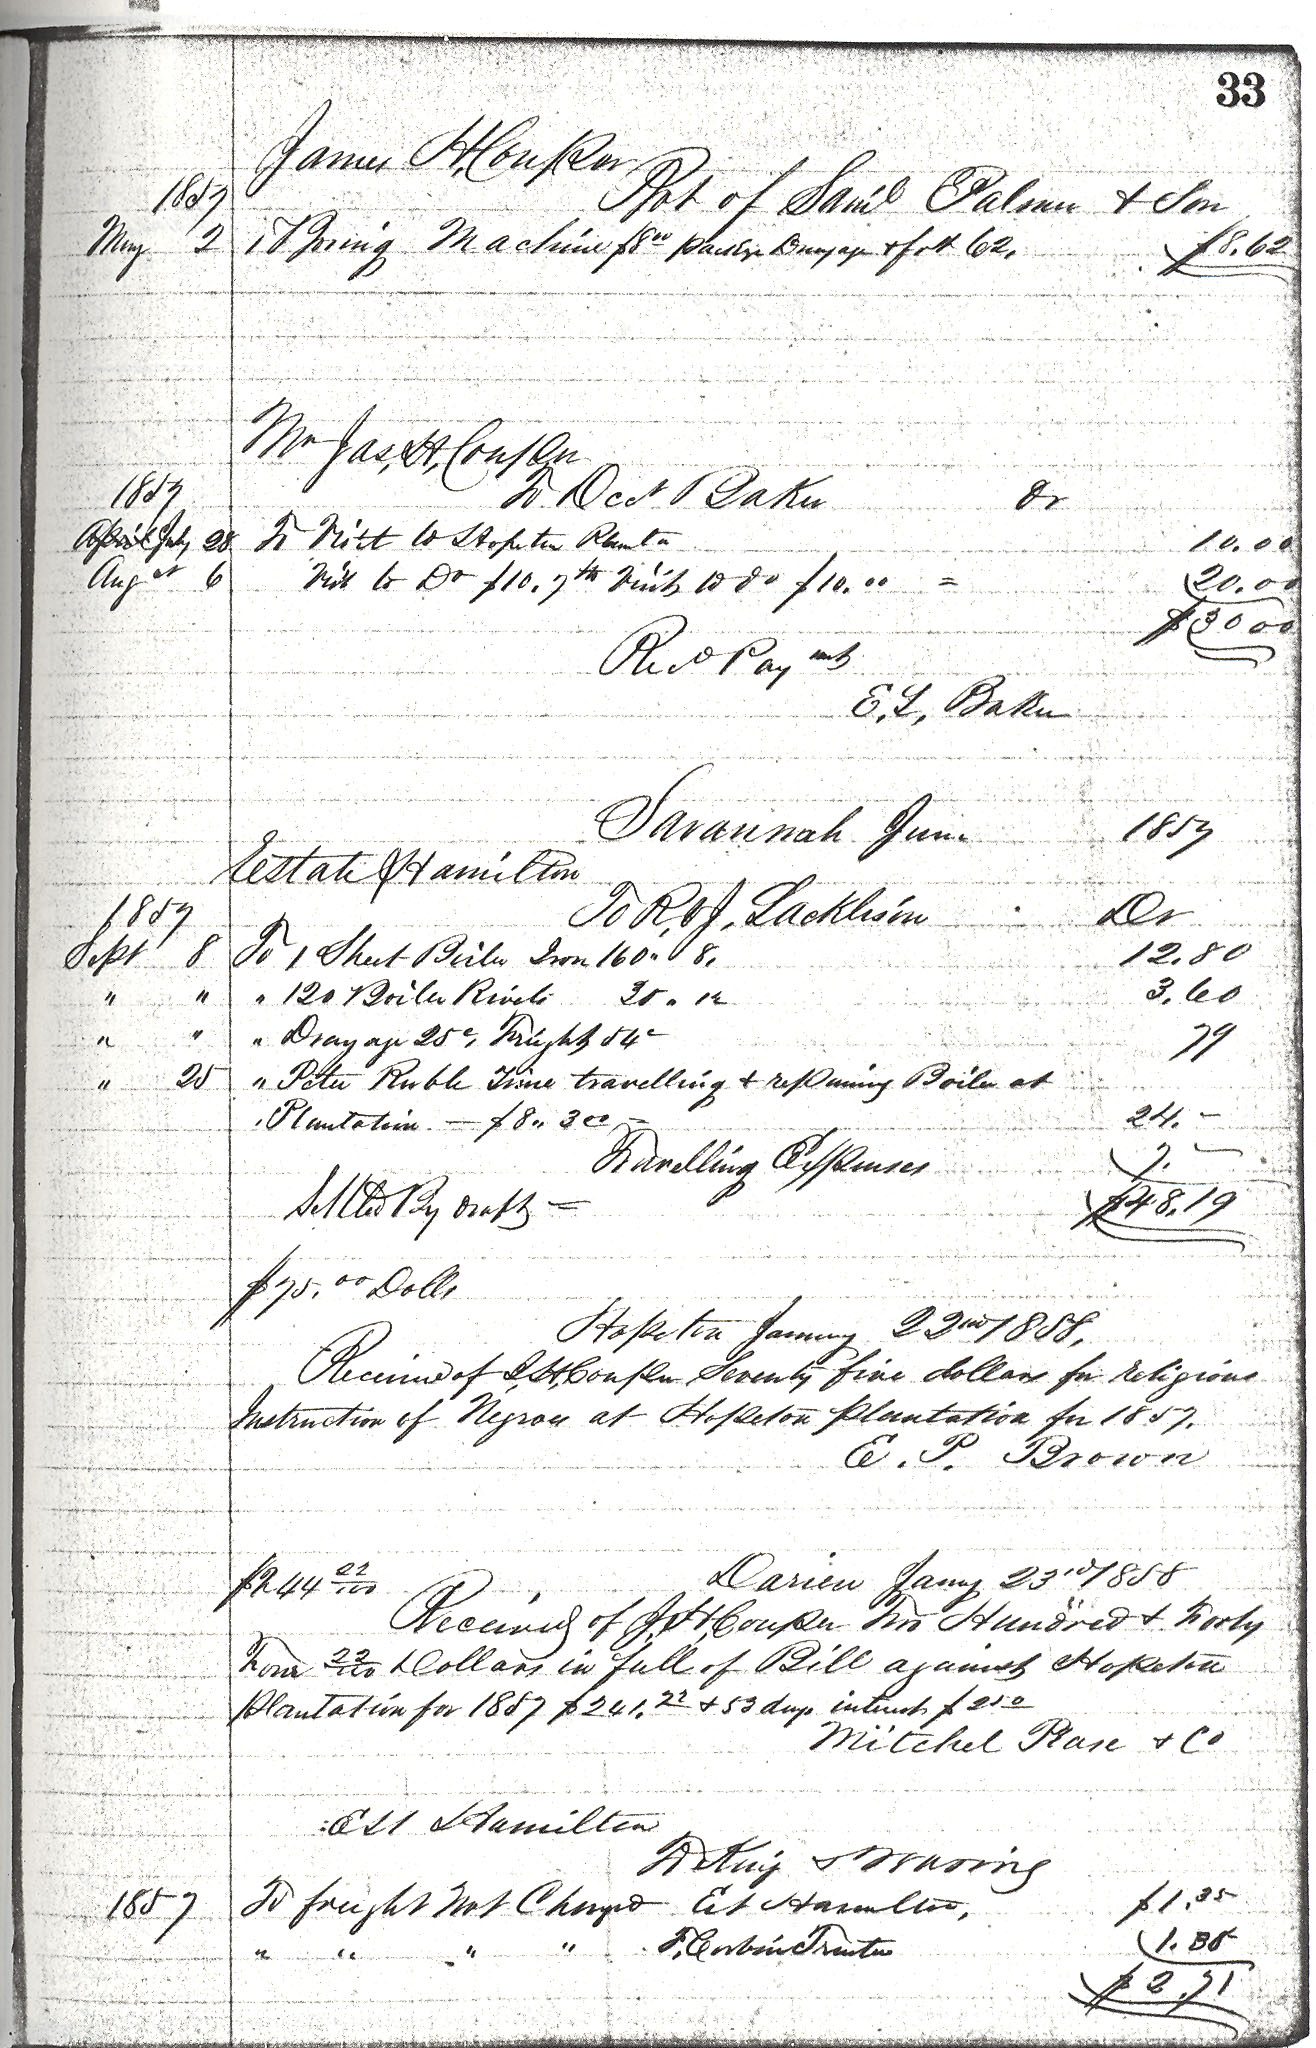 33
James H. Couper
1857 Bot of Saml Palmer & Son
May 2 1 Boring Machine $8.00 package Drayage & frt 62. $8.62
Mr Jas. H. Couper
1857 To Doct Baker Dr
April July 28 To Visit to Hopeton Planta 10.00
Augst 6 Visit to Do $10. 7th Visit to do $10.00 = 20.00
$30 00
Recd Payment
E. L. Baker
Savannah June 1857
Estate Hamilton
1857 To R. & J. Lacklison Dr
Sept 8 To 1 Sheet Boiler Iron 160 " 8. 12.80
" " " 120 Boiler Rivets 30 " 12 3.60
" " " Drayage 25c, Freight 54c 79
" 25 " Peter Ruble Time travelling & repairing Boiler at
Plantation — $8 " 3 00 — 24. —
Travelling Expenses 7. —
Settled By draft — $48.19
$75.00 Dolls
Hopeton January 22nd 1858.
Received of J. H. Couper Seventy five dollars for religious
Instruction of Negroes at Hopeton plantation for 1857.
E. P. Brown
$244 22/100 Darien Jany 23rd 1858
Received of J. H. Couper Two Hundred & Forty
Four 22/100 Dollars in full of Bill against Hopeton
plantation for 1857 $241.72 & 53 days interest $2 50
Mitchel Pease & Co
Est Hamilton
To King & Waring
1857 To freight Not Charged Est Hamilton, $1.35
" " " " F. Corbin Trustee 1.35
$2.71